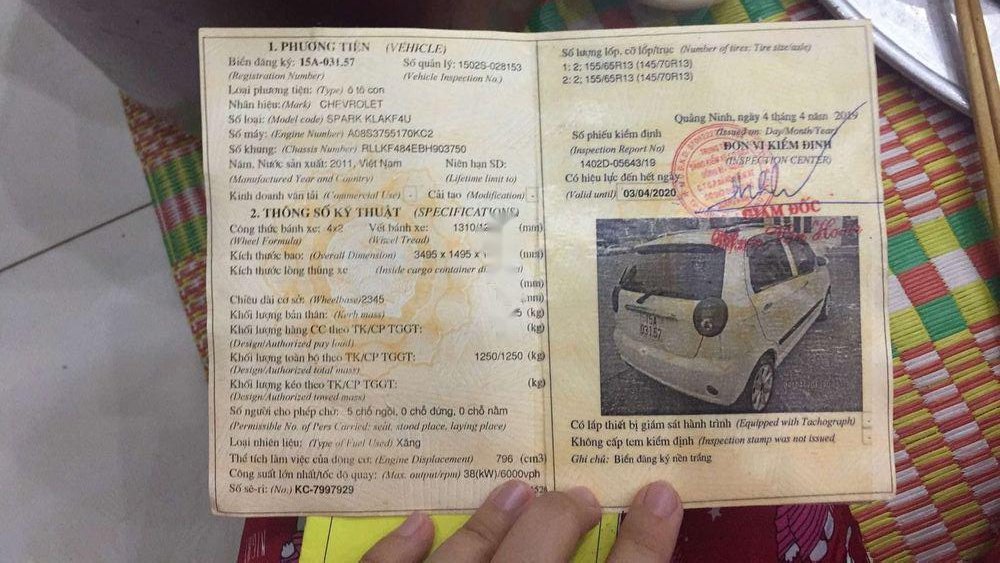 1. PHƯƠNG TIỆN (VEHICLE)
Biển đăng ký: 15A-031.57 Số quản lý: 1502S-028153
(Registration Number) (Vehicle Inspection No.)
Loại phương tiện: (Type) ô tô con
Nhãn hiệu: (Mark) CHEVROLET
Số loại: (Model code) SPARK KLAKF4U
Số máy: (Engine Number) A08S3755170KC2
Số khung: (Chassis Number) RLLKF484EBH903750
Năm, Nước sản xuất: 2011, Việt Nam Niên hạn SD:
(Manufactured Year and Country) (Lifetime limit to)
Kinh doanh vận tải (Commercial Use) Cải tạo (Modification)
2. THÔNG SỐ KỸ THUẬT (SPECIFICATIONS)
Công thức bánh xe: 4x2 Vết bánh xe: 1310/12 (mm)
(Wheel Formula) (Wheel Tread)
Kích thước bao: (Overall Dimension) 3495 x 1495 x 1 (mm)
Kích thước lòng thùng xe (Inside cargo container
(mm)
Chiều dài cơ sở: (Wheelbase)2345 (mm)
Khối lượng bản thân: (Kerb mass) 5 (kg)
Khối lượng hàng CC theo TK/CP TGGT: (kg)
(Design/Authorized pay load)
Khối lượng toàn bộ theo TK/CP TGGT: 1250/1250 (kg)
(Design/Authorized total mass)
Khối lượng kéo theo TK/CP TGGT: (kg)
(Design/Authorized towed mass)
Số người cho phép chở: 5 chỗ ngồi, 0 chỗ đứng, 0 chỗ nằm
(Permissible No. of Pers Carried: seat, stood place, laying place)
Loại nhiên liệu: (Type of Fuel Used) Xăng
Thể tích làm việc của động cơ: (Engine Displacement) 796 (cm3)
Công suất lớn nhất/tốc độ quay: (Max. output/rpm) 38(kW)/6000vph
Số sê-ri: (No.) KC-7997929
Số lượng lốp, cỡ lốp/trục (Number of tires; Tire size/axle)
1: 2; 155/65R13 (145/70R13)
2: 2; 155/65R13 (145/70R13)
Quảng Ninh, ngày 4 tháng 4 năm 2019
Số phiếu kiểm định (Issued on: Day/Month/Year)
(Inspection Report No) ĐƠN VỊ KIỂM ĐỊNH
1402D-05643/19 (INSPECTION CENTER)
Có hiệu lực đến hết ngày
(Valid until) 03/04/2020
GIÁM ĐỐC
15A
03157
Có lắp thiết bị giám sát hành trình (Equipped with Tachograph)
Không cấp tem kiểm định (Inspection stamp was not issued
Ghi chú: Biển đăng ký nền trắng